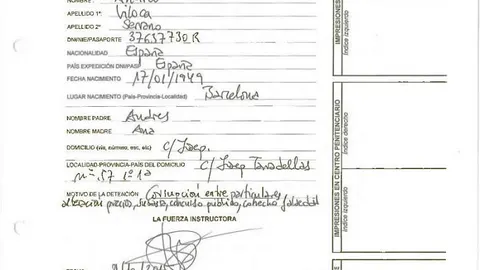 NOMBRE
APELLIDO 1º Viloca
APELLIDO 2º Serrano
DNI/NIE/PASAPORTE 37637730R
NACIONALIDAD España
PAÍS EXPEDICIÓN DNI/PAS España
FECHA NACIMIENTO 17/01/1949
LUGAR NACIMIENTO (País-Provincia-Localidad) Barcelona
NOMBRE PADRE Andres
NOMBRE MADRE Ana
DOMICILIO (vía, número, esc, etc) C/ Josep.
LOCALIDAD PROVINCIA-PAÍS DEL DOMICILIO C/ Josep Taradellas
nº 57 1º 1ª
MOTIVO DE LA DETENCIÓN Corrupción entre particulares
alteración precios, concurso público, cohecho falsedad
LA FUERZA INSTRUCTORA
IMPRESIONES EN
Índice izquierdo
Índice derecho
IMPRESIONES EN CENTRO PENITENCIARIO
Índice izquierdo